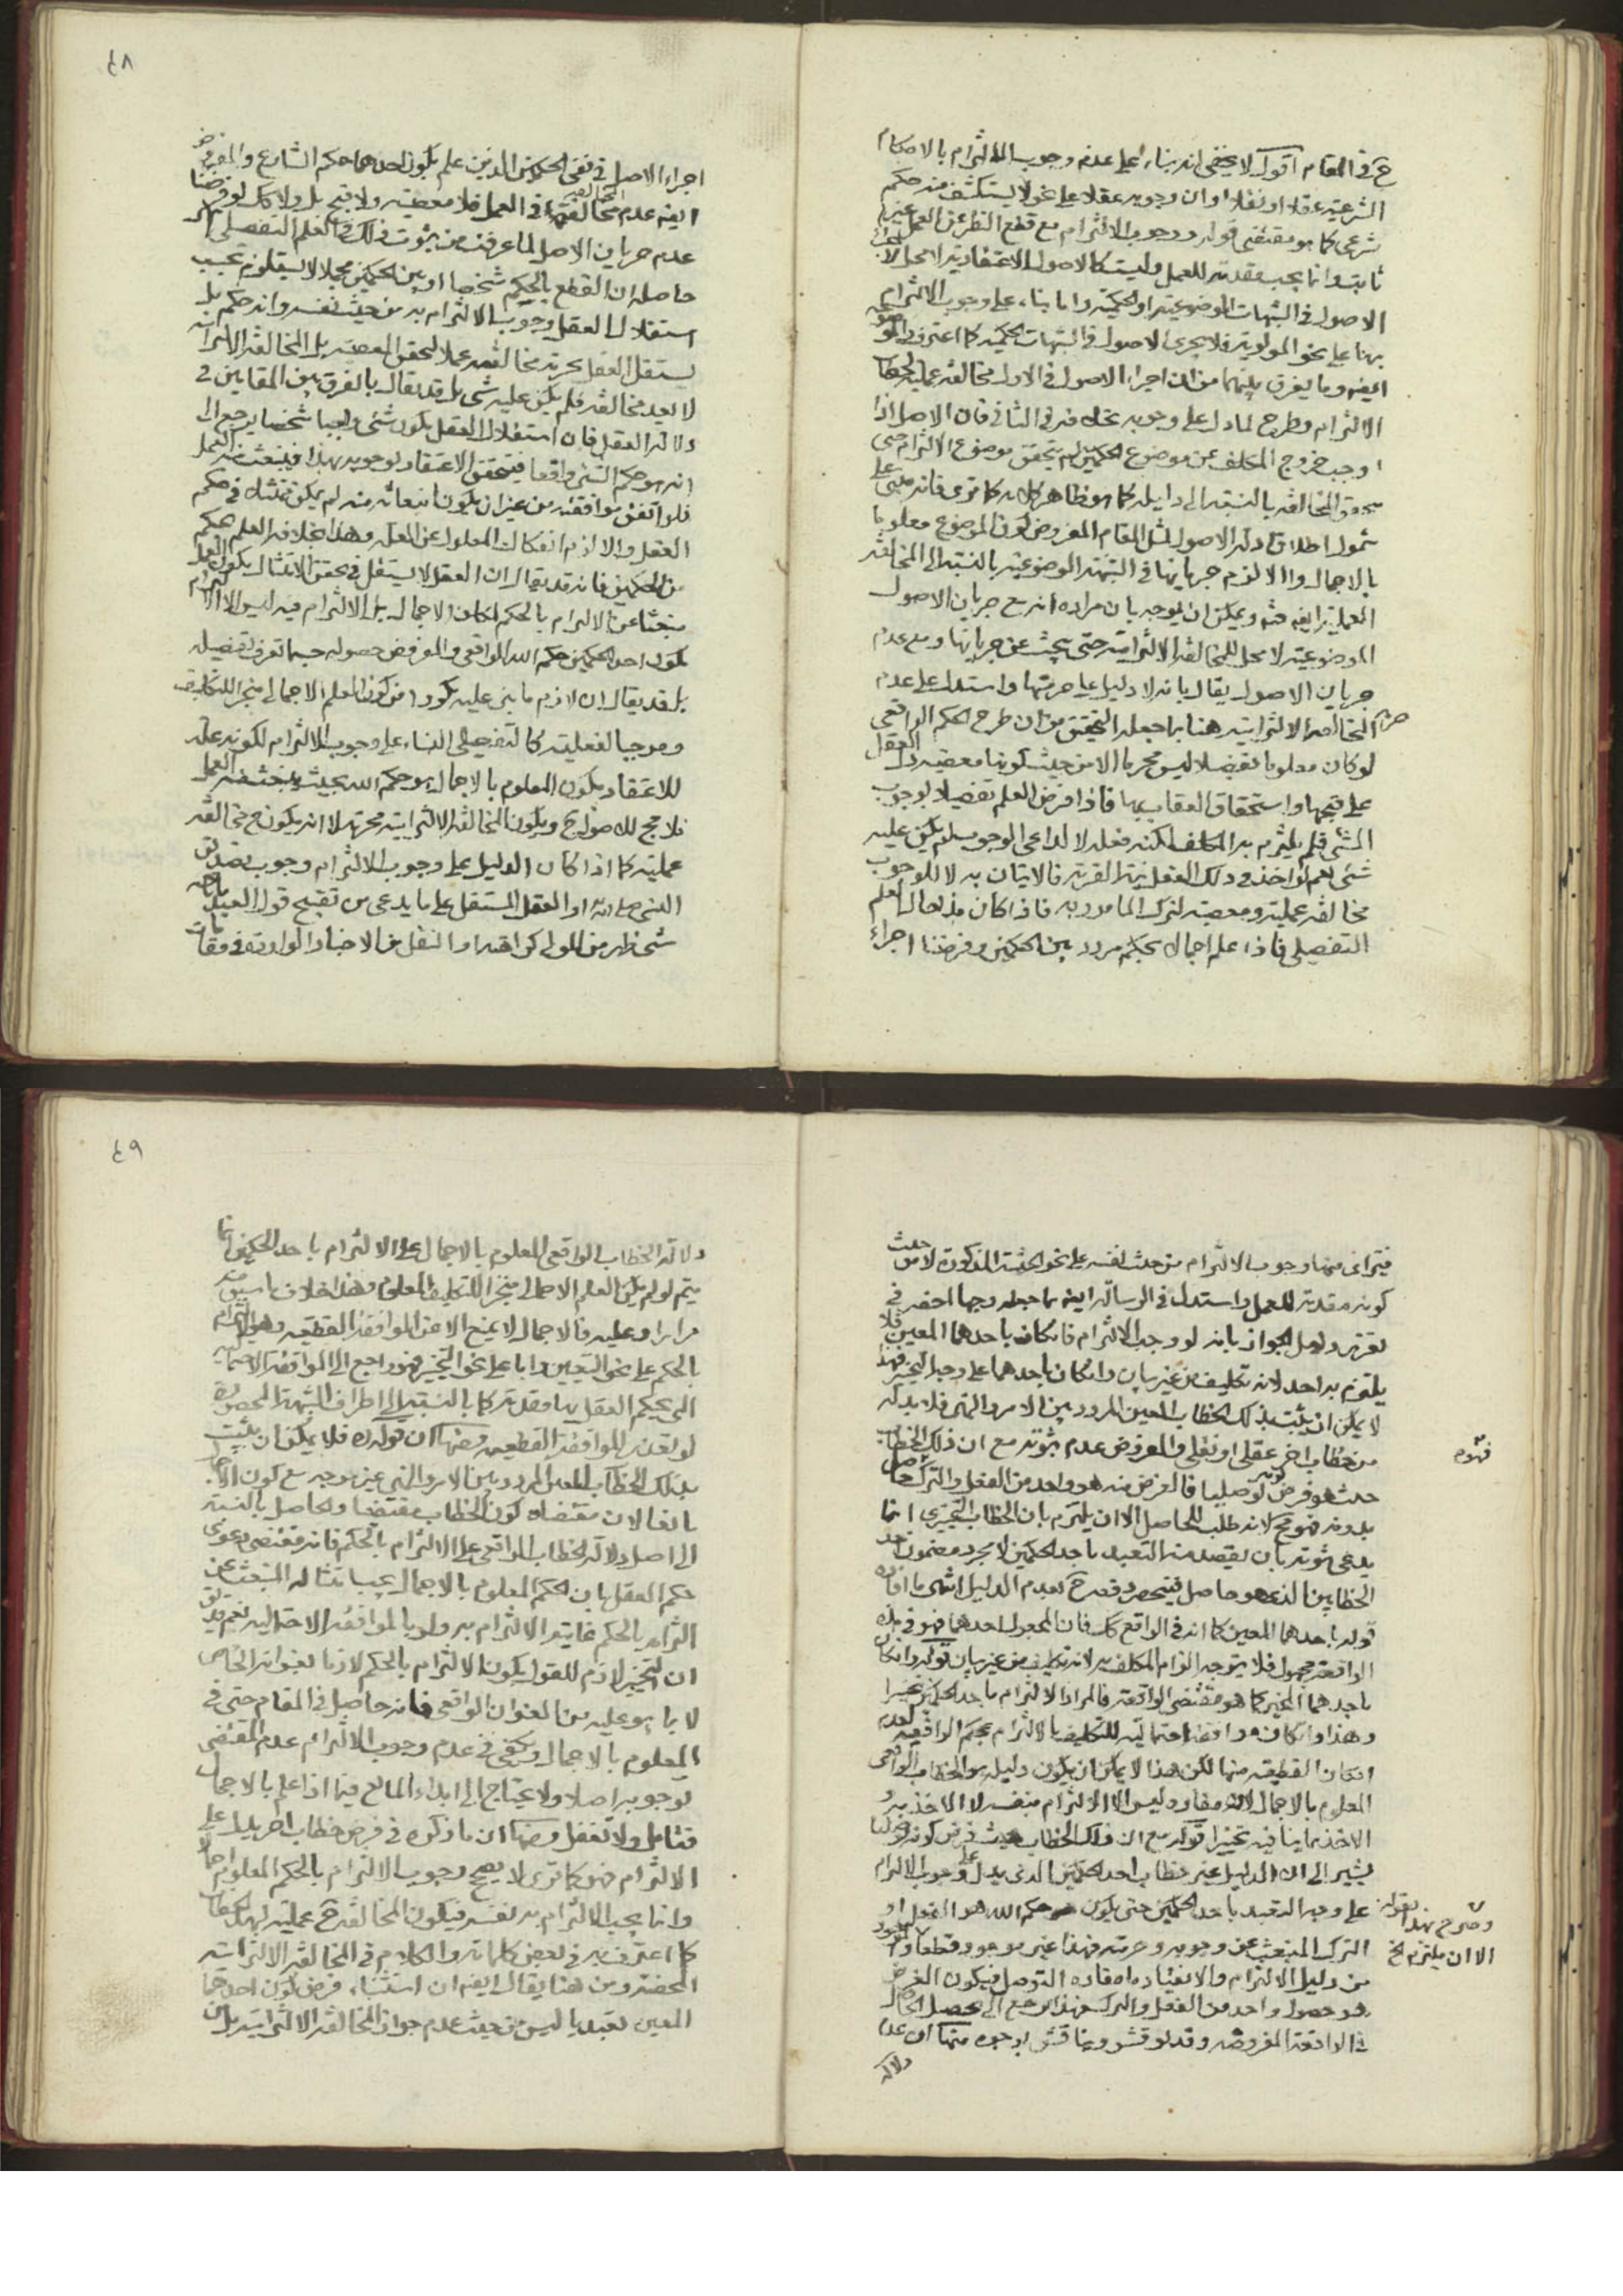 ح في المقام اقول لا يخفى انه بناء على عدم وجوب الالتزام بالاحكام
الشرعية عقلا او نقلا او ان وجوبه عقلا على نحو لا يستكشف منه حكم
شرعي كما هو مقتضى قوله ووجوب الالتزام مع قطع النظر عن العمل غير
ثابت وانما يجب مقدمة للعمل وليست كالاصول الاعتقادية
الاصول في الشبهات الموضوعية او الحكمية واما بناء على وجوب الالتزام
بها على نحو المولوية فلا يجرى الاصول في الشبهات الحكمية كما اعترف
ايضا وما يفرق بينهما من ان اجراء الاصول في الاول مخالفة عملية لخطاب
الالتزام وطرح لما دل على وجوبه بخلافه في الثاني فان الاصل اذا
اوجب خروج المكلف عن موضوع الحكمين لم يتحقق موضوع الالتزام حتى
يتحقق المخالفة بالنسبة الى دليله كما هو ظاهر كلامه كما ترى فانه مبني على
شمول اطلاق ادلة الاصول لمثل المقام المفروض كون الموضوع معلوما
بالاجمال والا لزم جريانها في الشبهة الموضوعية بالنسبة الى المخالفة
العملية ايضا فتدبر ويمكن ان يوجه بان مراده انه مع جريان الاصول
الموضوعية لا محل للمخالفة الالتزامية حتى يبحث عن جريانها ومع عدم
جريان الاصول يقال بانه لا دليل على حرمتها واستدل على عدم
حرمة المخالفة الالتزامية هنا بما جعله التحقيق من ان طرح الحكم الواقعي
لو كان معلوما تفصيلا ليس محرما الا من حيث كونها معصية دل العقل
على قبحها واستحقاق العقاب بها فاذا فرض العلم تفصيلا بوجوب
الشئ فلم يلتزم به المكلف لكنه فعله لا لداعي الوجوب لم يكن عليه
شئ نعم لو اخذ في ذلك الفعل نية القربة فالاتيان به لا للوجوب
مخالفة عملية ومعصية لترك المامور به فاذا كان هذا حال العلم
التفصيلي فاذا علم اجمالا بحكم مردد بين الحكمين وفرضنا اجراء
٤٨
اجراء الاصل في نفي الحكمين الذين علم بكون احدهما حكم الشارع والمفروض
ايضا عدم مخالفتهما في العمل فلا معصية ولا قبح بل ولا كذلك لو فرضنا
عدم جريان الاصل لما عرفت من ثبوت ذلك في العلم التفصيلي
حاصله ان القطع بالحكم شخصا او بين الحكمين مجملا لا يستلزم بحسب
استقلال العقل وجوب الالتزام به من حيث نفسه وانه حكم بل
يستقل العقل بحرمة مخالفته عملا لتحقق المعصية بل المخالفة الالتزامية
لا يعد مخالفة فلم يكن عليه شئ بل قد يقال بالفرق بين المقامين في
دلالة العقل فان استقلال العقل بكون شئ واجبا شخصا يرجع الى
انه هو حكم الشئ واقعا فيتحقق الاعتقاد بوجوبه بهذا فينبعث منه العمل
فلو اتفق موافقته من غير ان يكون انبعاثه منه لم يكن ممتثلا في حكم
العقل والا لزم انفكاك المعلول عن العلة وهذا بخلاف العلم بحكم
من الحكمين فانه قد يقال ان العقل لا يستقل في تحقق الامتثال بكون العمل
منبعثا عن الالتزام بالحكم لمكان الاجمال بل الالتزام فيه ليس الا التزام
بكون احد الحكمين حكم الله الواقعي والمفروض حصوله حسبما تعرف تفصيله
بل قد يقال ان لازم ما بنى عليه من كون العلم الاجمالي منجزا للتكليف
وموجبا لفعليته كالتفصيلي البناء على وجوب الالتزام لكونه علة
للاعتقاد بكون المعلوم بالاجمال هو حكم الله بحيث ينبعث منه العمل
فلا مجرى للاصول ح ويكون المخالفة الالتزامية محرمة لا انه يكون ح مخالفة
عملية كما اذا كان الدليل على وجوب الالتزام وجوب تصديق
النبي صلى الله او العقل المستقل على ما يدعى من تقبيح قول العبد
شئ ظهر من المولى كراهته او النقل من الاخبار الواردة في مقامات
فيترائى منها وجوب الالتزام من حيث نفسه على نحو الحيثية المذكورة لا من حيث
كونه مقدمة للعمل واستدل في الرسالة ايضا بما جعله وجها اخصر في
تقرير دليل الجواز بانه لو وجب الالتزام فان كان باحدهما المعين فلا
يلتزم به احد لانه تكليف من غير بيان وان كان باحدهما على وجه التخيير فهذا
لا يمكن ان يثبت بذلك الخطاب المعين المردد بين الامر والنهي فلا بد له
من خطاب اخر عقلي او نقلي والمفروض عدم ثبوته مع ان ذلك الخطاب
حيث هو فرض كونه توصليا فالغرض منه هو واحد من الفعل والترك حاصل
بدونه فهو ح لانه طلب للحاصل الا ان يلتزم بان الخطاب التخييرى انما
يدعى ثبوته بان يقصد منه التعبد باحد الحكمين لا مجرد مضمون احد
الخطابين الذي هو حاصل فينحصر دفعه ح بعدم الدليل انتهى ما افاده
قوله باحدهما المعين كما انه في الواقع كك فان المجعول احدهما فهو في هذه
الواقعة مجهول فلا يتوجه الزام المكلف به لانه تكليف من غير بيان قوله وان كان
باحدهما المخير كما هو مقتضى الواقعة فالمراد الالتزام باحد الحكمين تخييرا
وهذا وان كان موافقة احتمالية للتكليف بالالتزام بحكم الواقعة لعدم
امكان القطعية منها لكن هذا لا يمكن ان يكون دليله هو الخطاب الواقعي
المعلوم بالاجمال لان مفاده ليس الا الالتزام بنفسه لا الاخذ به و
الاخذ بما ينافيه تخييرا قوله مع ان ذلك الخطاب حيث فرض كونه توصليا
يشير الى ان الدليل غير خطاب احد الحكمين الذي يدل على وجوب الالتزام
على وجه التعبد باحد الحكمين حتى يكون حكم الله هو الفعل او
الترك المنبعث عن وجوبه وحرمته فهذا غير موجود قطعا والموجود
من دليل الالتزام والانقياد ماه مفاده التوصل فيكون الغرض
هو حصول واحد من الفعل والترك فهذا يرجع الى تحصيل الحاصل
في الواقعة المفروضة وقد نوقش ويناقش بوجوه منها ان عدم
دلالة
فتوهم
وصرح بهذا بقوله
الا ان يلتزم الخ
٤٩
دلالة الخطاب الواقعي المعلوم بالاجمال على الالتزام باحد الحكمين انما
يتم لو لم يكن العلم الاجمالي منجزا للتكليف المعلوم وهذا خلاف ما سبق منه
مرارا وعليه فالاجمال لا يمنع الا عن الموافقة القطعية وهو الالتزام
بالحكم على نحو التعيين واما على نحو التخيير فهو راجع الى الموافقة الاحتمالية
التي يحكم العقل بها مقدمة كما بالنسبة الى اطراف الشبهة المحصورة
لو تعذر الموافقة القطعية ومنها ان قوله فلا يمكن ان يثبت
بذلك الخطاب المعين المردد بين الامر والنهي غير موجه مع كون الاجمال
مانعا لان مقتضاه كون الخطاب مقتضيا والحاصل بالنسبة
الى اصل دلالة الخطاب الواقعي على الالتزام بالحكم فانه مقتضى دعوى
حكم العقل بان الحكم المعلوم بالاجمال يجب امتثاله المنبعث عن
التزامه بالحكم غايته الالتزام به ولو بالموافقة الاحتمالية نعم قد يق
ان التخيير لازم للقول بكون الالتزام بالحكم لازما بعنوانه الخاص
لا بما هو عليه من العنوان الواقعي فانه حاصل في المقام حتى في
المعلوم بالاجمال ويكفي في عدم وجوب الالتزام عدم المقتضى
لوجوبه اصلا ولا يحتاج الى ابداء المانع فيما اذا علم بالاجمال
فتامل ولا تغفل ومنها ان ما ذكره في فرض خطاب اخر يدل على
الالتزام فهو كما ترى لا يصحح وجوب الالتزام بالحكم المعلوم اجمالا
وانما يجب الالتزام به نفسه فيكون المخالفة ح عملية لهذا الخطاب
كما اعترف به في بعض كلماته والكلام في المخالفة الالتزامية
المحضة ومن هنا يقال ايضا ان استثناء فرض كون احدهما
المعين تعبديا ليس من حيث عدم جواز المخالفة الالتزامية بل من